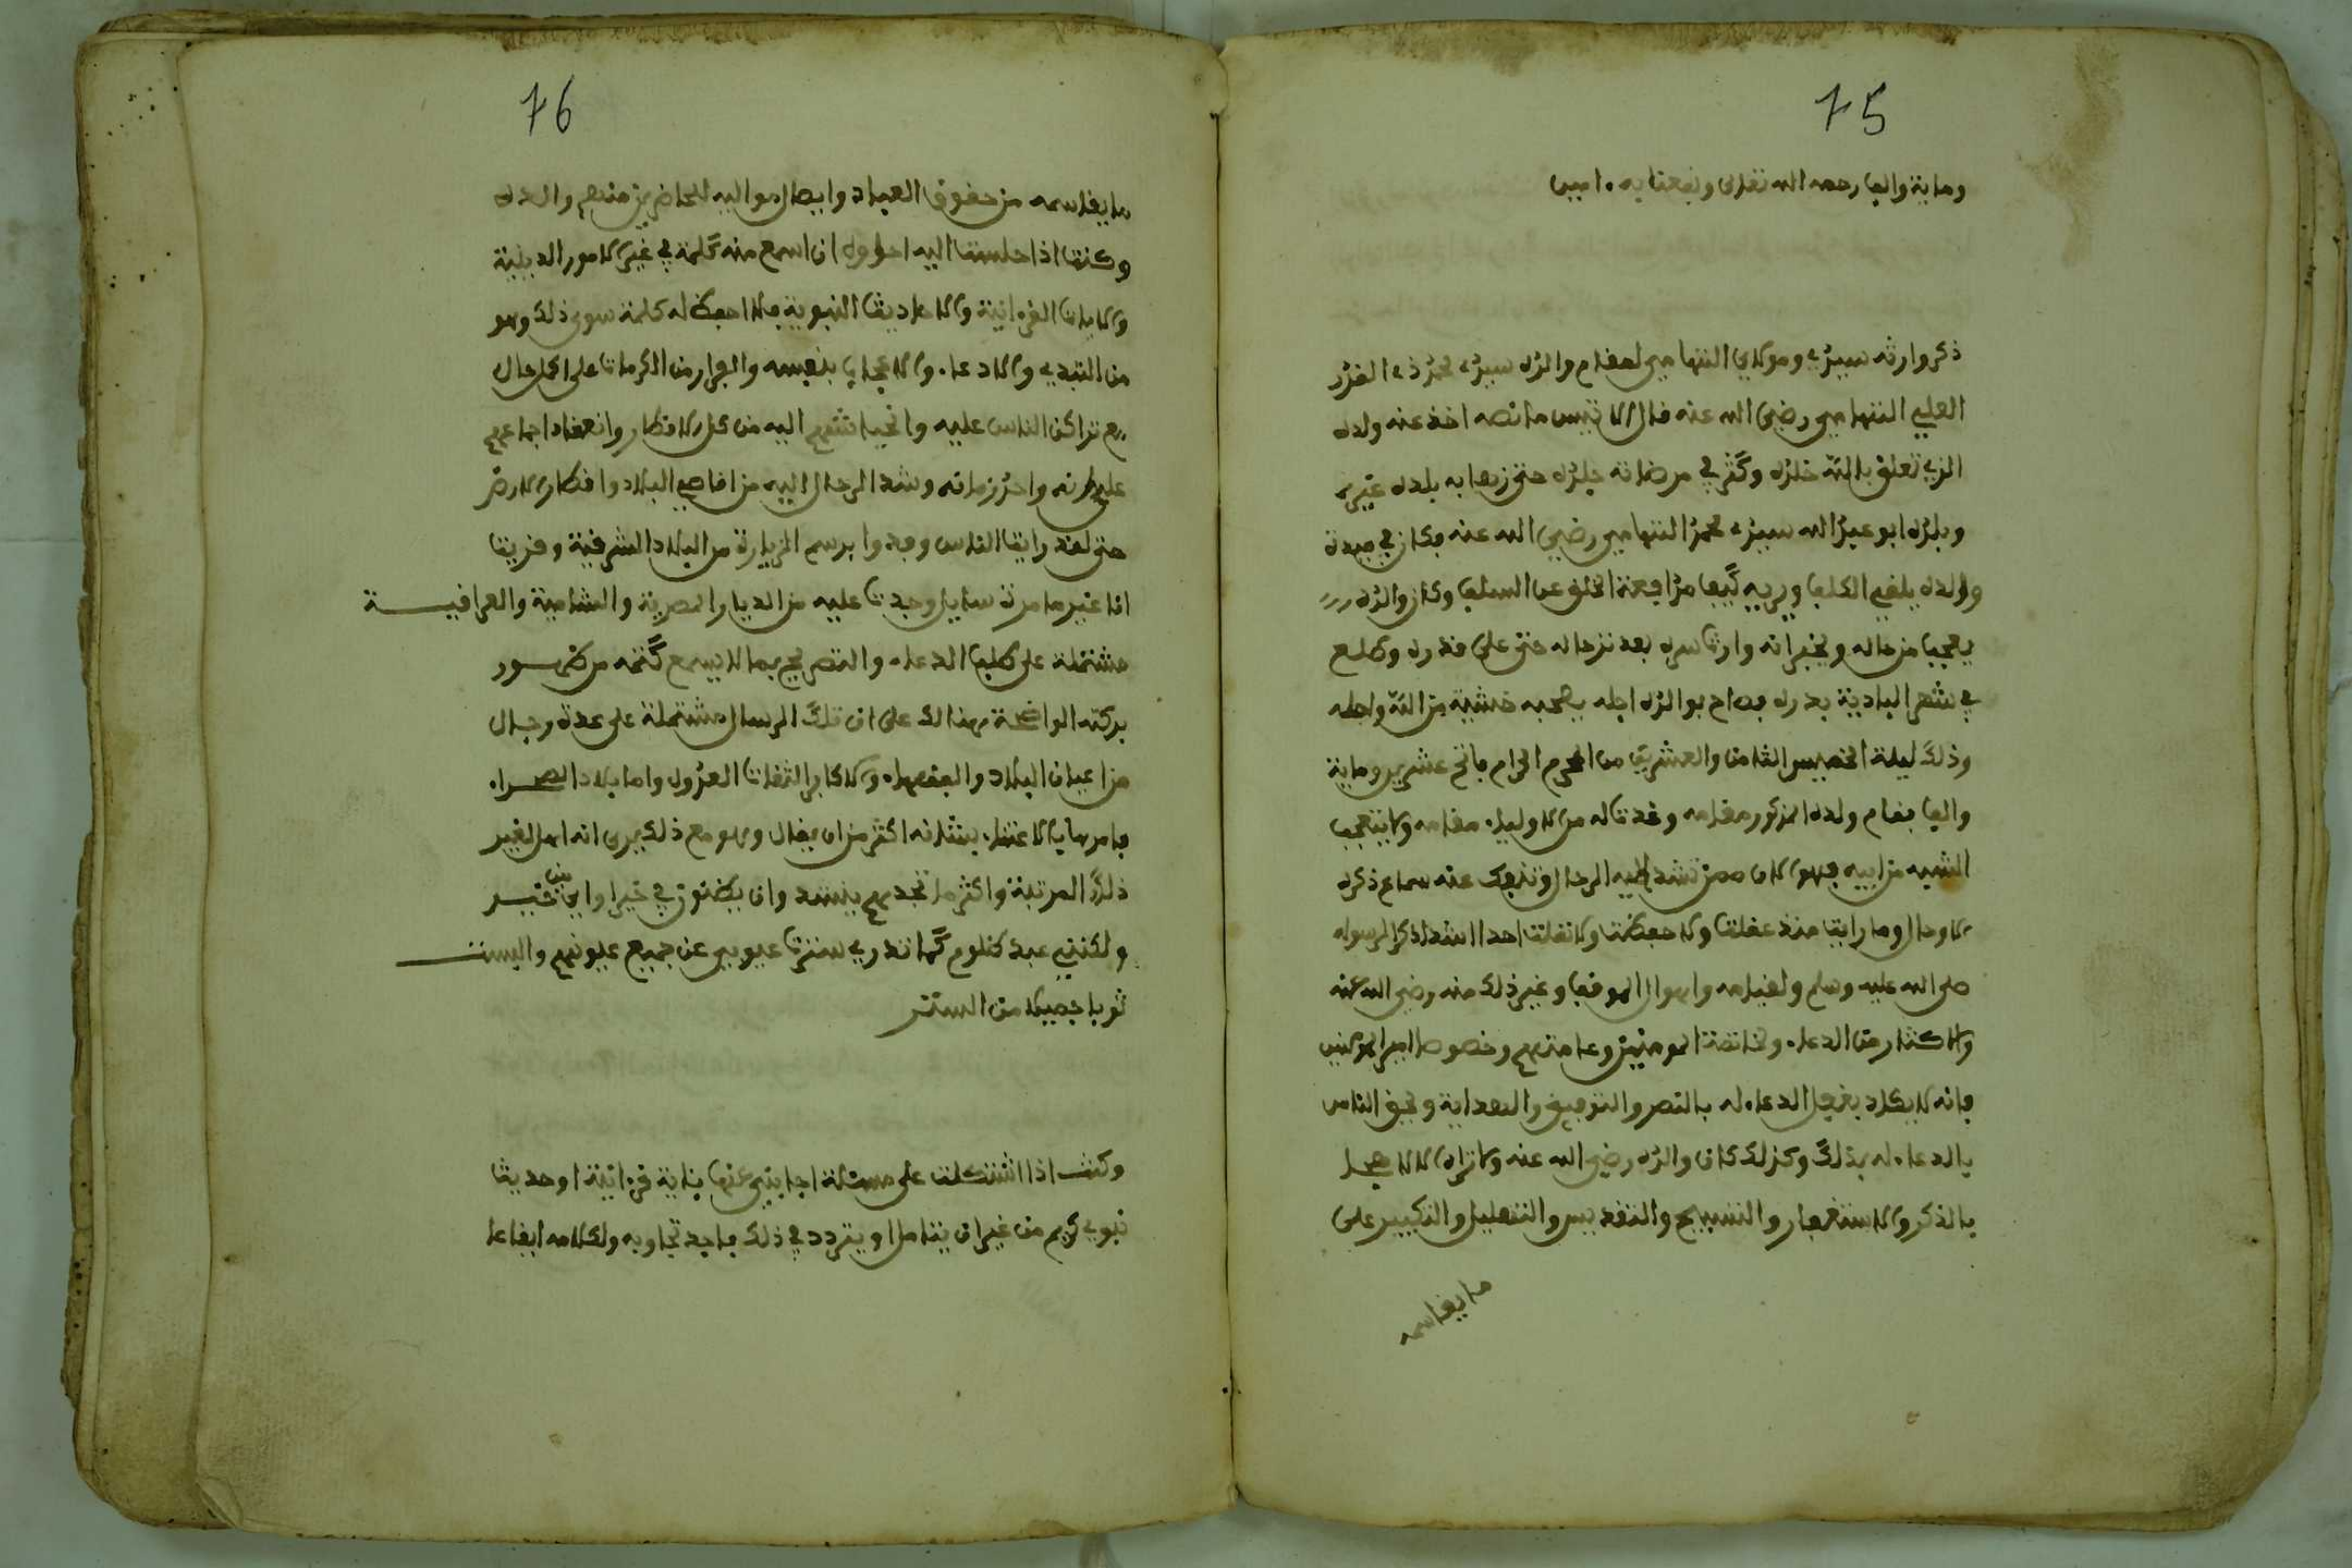 75
وماية والف رحمه الله تعلى ونفعنا به ٠ امين
ذكر وارثه سيدي ومولاي التهامي لمقام والده سيدي محمد ذي القدر
العلي التهامي رضي الله عنه قال الانيس ما نصه اخذ عنه ولده
الذي تعلق بالله خلده وكثر في مرضاته جلده حتى زها به بلده غيره
وبلده ابو عبد الله سيدي محمد التهامي رضي الله عنه فكان في ميدة
والده يلقي الكلف ويريه كيف مدافعة الخلف عن السلف وكان والده
يعجب من حاله ويخبر انه وارث سره بعد نزحاله حتى على قدره وطلع
في شهر البادية بدره فصاح بوالده اجله يصحبه خشية من الله واجله
وذلك ليلة الخميس الثامن والعشرين من المحرم الحرام فاتح عشرين وماية
والف فقام ولده المذكور مقامه وغدت له من الاولياء مقامه ولا يتعجب
الشبه من ابيه فهو الان ممن تشد اليه الرحال وتنفك عنه سماع ذكره
الاوحال وما رايت منذ عقلت ولا حفظت ولا نقلت احدا اشد اذكرا لرسوله
صلى الله عليه وسلم ولقيامه واهوال الموقف وغير ذلك منه رضي الله عنه
والاكثار من الدعاء ولخاتمة المومنين وعامتهم وخصوصا امير المومنين
فانه لا يكاد يغفل الدعاء له بالنصر والتوفيق والهداية ويحق الناس
بالدعاء له بذلك وكذلك كان والده رضي الله عنه ولا تراه الا لاهجا
بالذكر والاستغفار والتسبيح والتقديس والتهليل والتكبير على
ما يقاسمه
76
ما يقاسمه من حقوق العباد وايصال مواليه للحاضرين منهم والعداه
وكنت اذا جلست اليه احاول ان اسمع منه كلمة في غير الامور الدينية
والايات القرءانية والاحاديث النبوية فلا احفظ له كلمة سوى ذلك وهو
من التبدي والادعاء والاعجاب بنفسه والفرار من الكرمات على اكمل حال
مع تراكن الناس عليه وانحياشهم اليه من كل الاقطار وانعقاد اجماعهم
على انه واحد زمانه وشد الرحال اليه من اقاصي البلاد واقطار الارض
حتى لقد رايت الناس وفدوا برسم الزيارة من البلاد المشرقية وقريت
انا غير ما مرة رسايل وجدت عليه من الديار المصرية والشامية والعراقيــة
مشتملة على طلب الدعاء والتصريح بما لا يسع كتمه من ظهــور
بركته الواضحة هنالك على ان تلك الرسايل مشتملة على عدة رجال
من اعيان البلاد والفقهاء والاكابر الثقات العدول واما بلاد الصحراء
فامرها بالاعتناء بشانه اكثر من ان يقال وهو مع ذلك يرى انه اهل لغير
ذلك المرتبة واكثر ما تجدهم ينشد وان يظنون في خيرا وابي خيــر
ولكنني عبد ظلوم كما تدري سترت عيوبي عن جميع عيونهم والبستــ
ثوبا جميلا من الستر
وكنت اذا اشتكلت علي مسئلة اجابني عنها باية قرءانية او حديث
نبوي كريم من غير ان يتامل او يتردد في ذلك فاجد تجاوبه ولكلامه ايقاعا